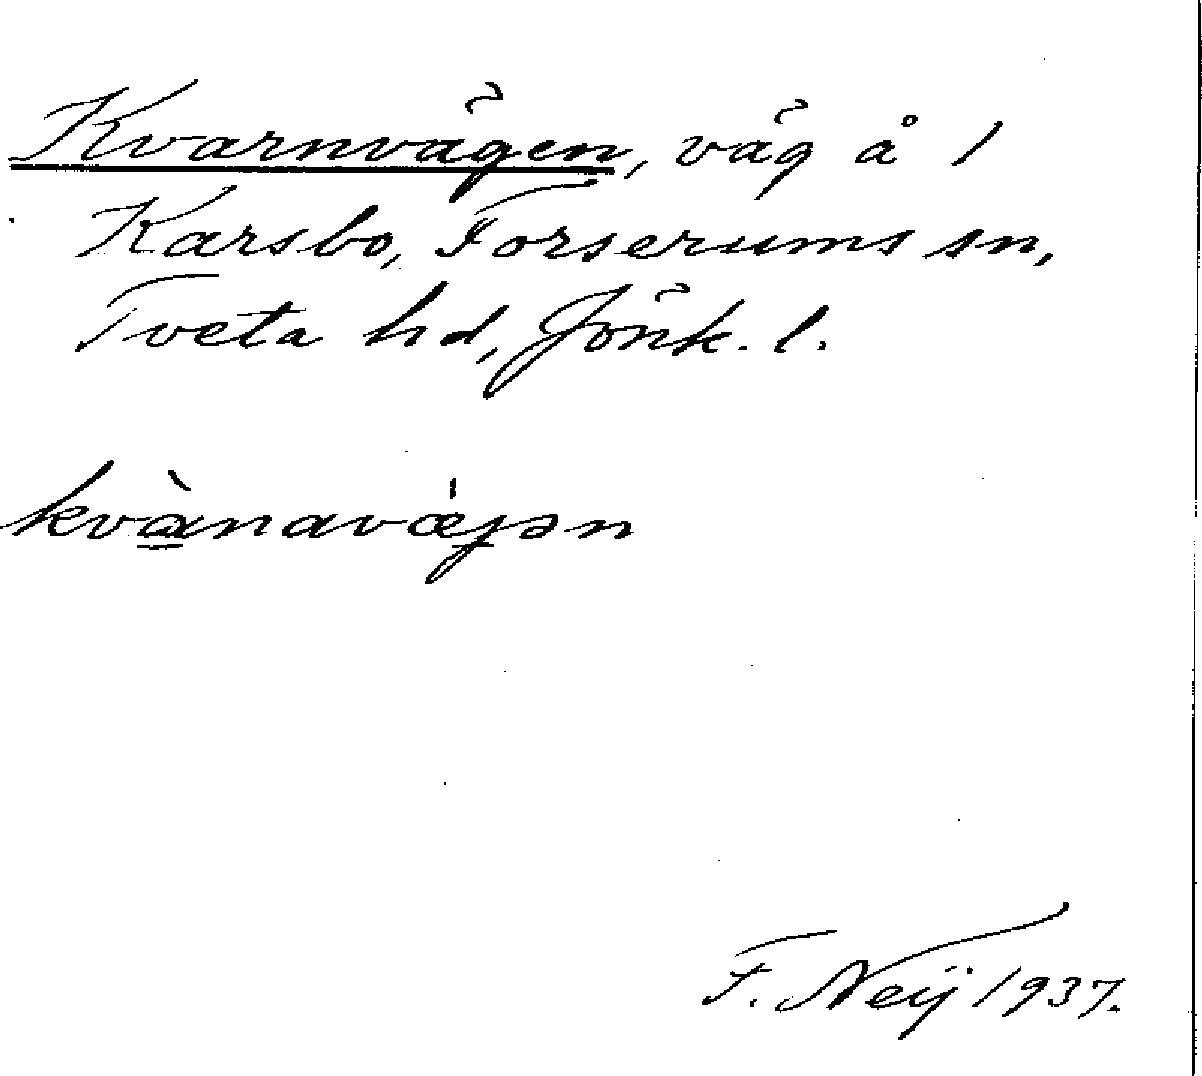 Kvarnvägen, väg å 1
Karsbo, Forserums sn,
Tveta hd, Jönk. l.
kvànavæ̍jən
F. Neij 1937.